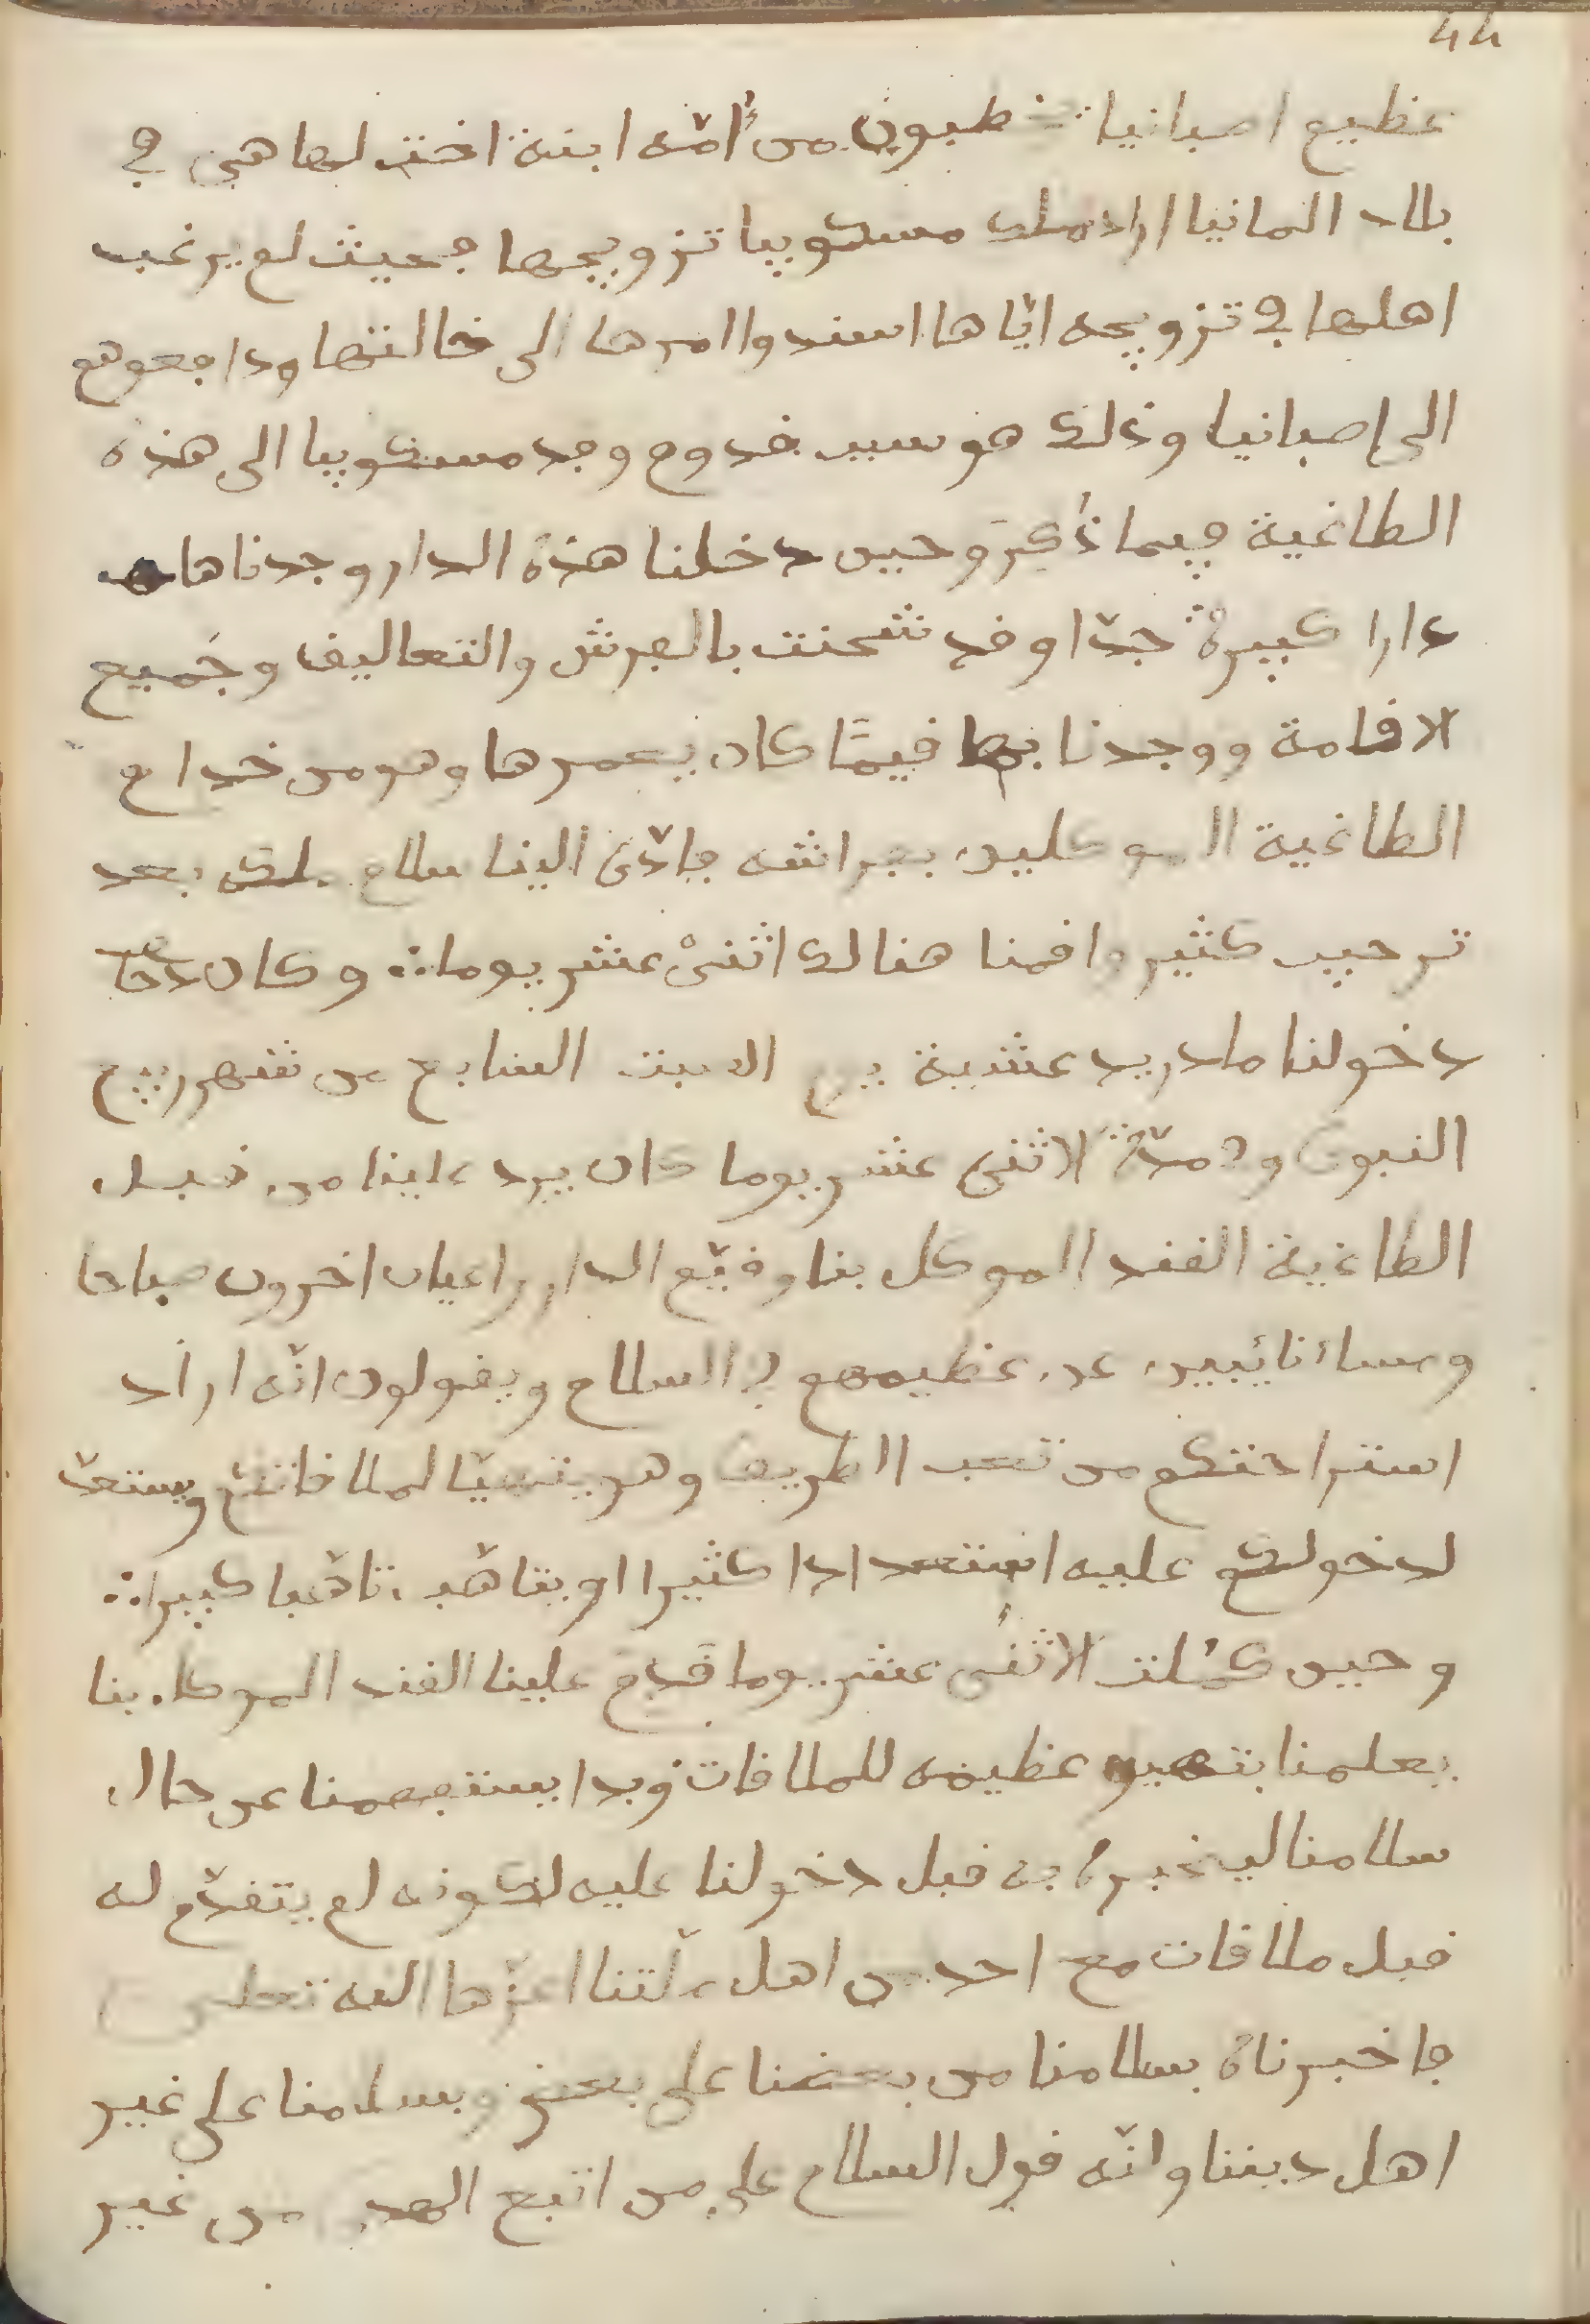 44
عظيم اصبانيا يخطبون من أمّه ابنة اختٍ لها هي في
بلاد المانيا اراد ملك مسكوبيا تزويجها فحيث لم يرغب
اهلها في تزويجه ايّاها اسندوا امرها الى خالتها ودافعوهم
الى إصبانيا وذلك هو سبب قدوم وفد مسكوبيا الى هذه
الطاغية فيما ذُكِرَ وحين دخلنا هذه الدار وجدناها
دارا كبيرة جدّا وقد شحنت بالفرش والتعاليق وجَميع
الاقامة ووجدنا بها قيمًّا كان يعمرها وهو من خدام
الطاغية الموكلين بفراشه فادّى الينا سلام ملكه بعد
ترحيب كثير واقمنا هنالك اثنىْ عشر يوما وكان
دخولنا مادريد عشية يوم السبت السابع من شهر ربيع
النبوى وفي مدّة الاثنى عشر يوما كان يرد علينا من قبل
الطاغية القند الموكل بنا وقيّم الدار واعيان اخرون صباحا
ومساء نائبين عن عظيمهم في السلام ويقولون انّه اراد
استراحتكم من تعب الطريق وهو يتهيّا لملاقاتكم ويستعدّ
لدخولكم عليه استعدادا كثيرا او يتاهّب تاهّبا كبيرا
وحين كمُلت الاثنى عشر يوما قدِم علينا القند الموكل بنا
يعلمنا بتهيو عظيمه للملاقات وبدا يستفهمنا عن حال
سلامنا ليخبره به قبل دخولنا عليه لكونه لم يتقدّم له
قبل ملاقات مع احد من اهل ملّتنا اعزّها الله تعلى
فاخبرناه بسلامنا من بعضنا على بعض وبسلامنا على غير
اهل ديننا وانّه قول السلام على من اتبع الهدى من غير